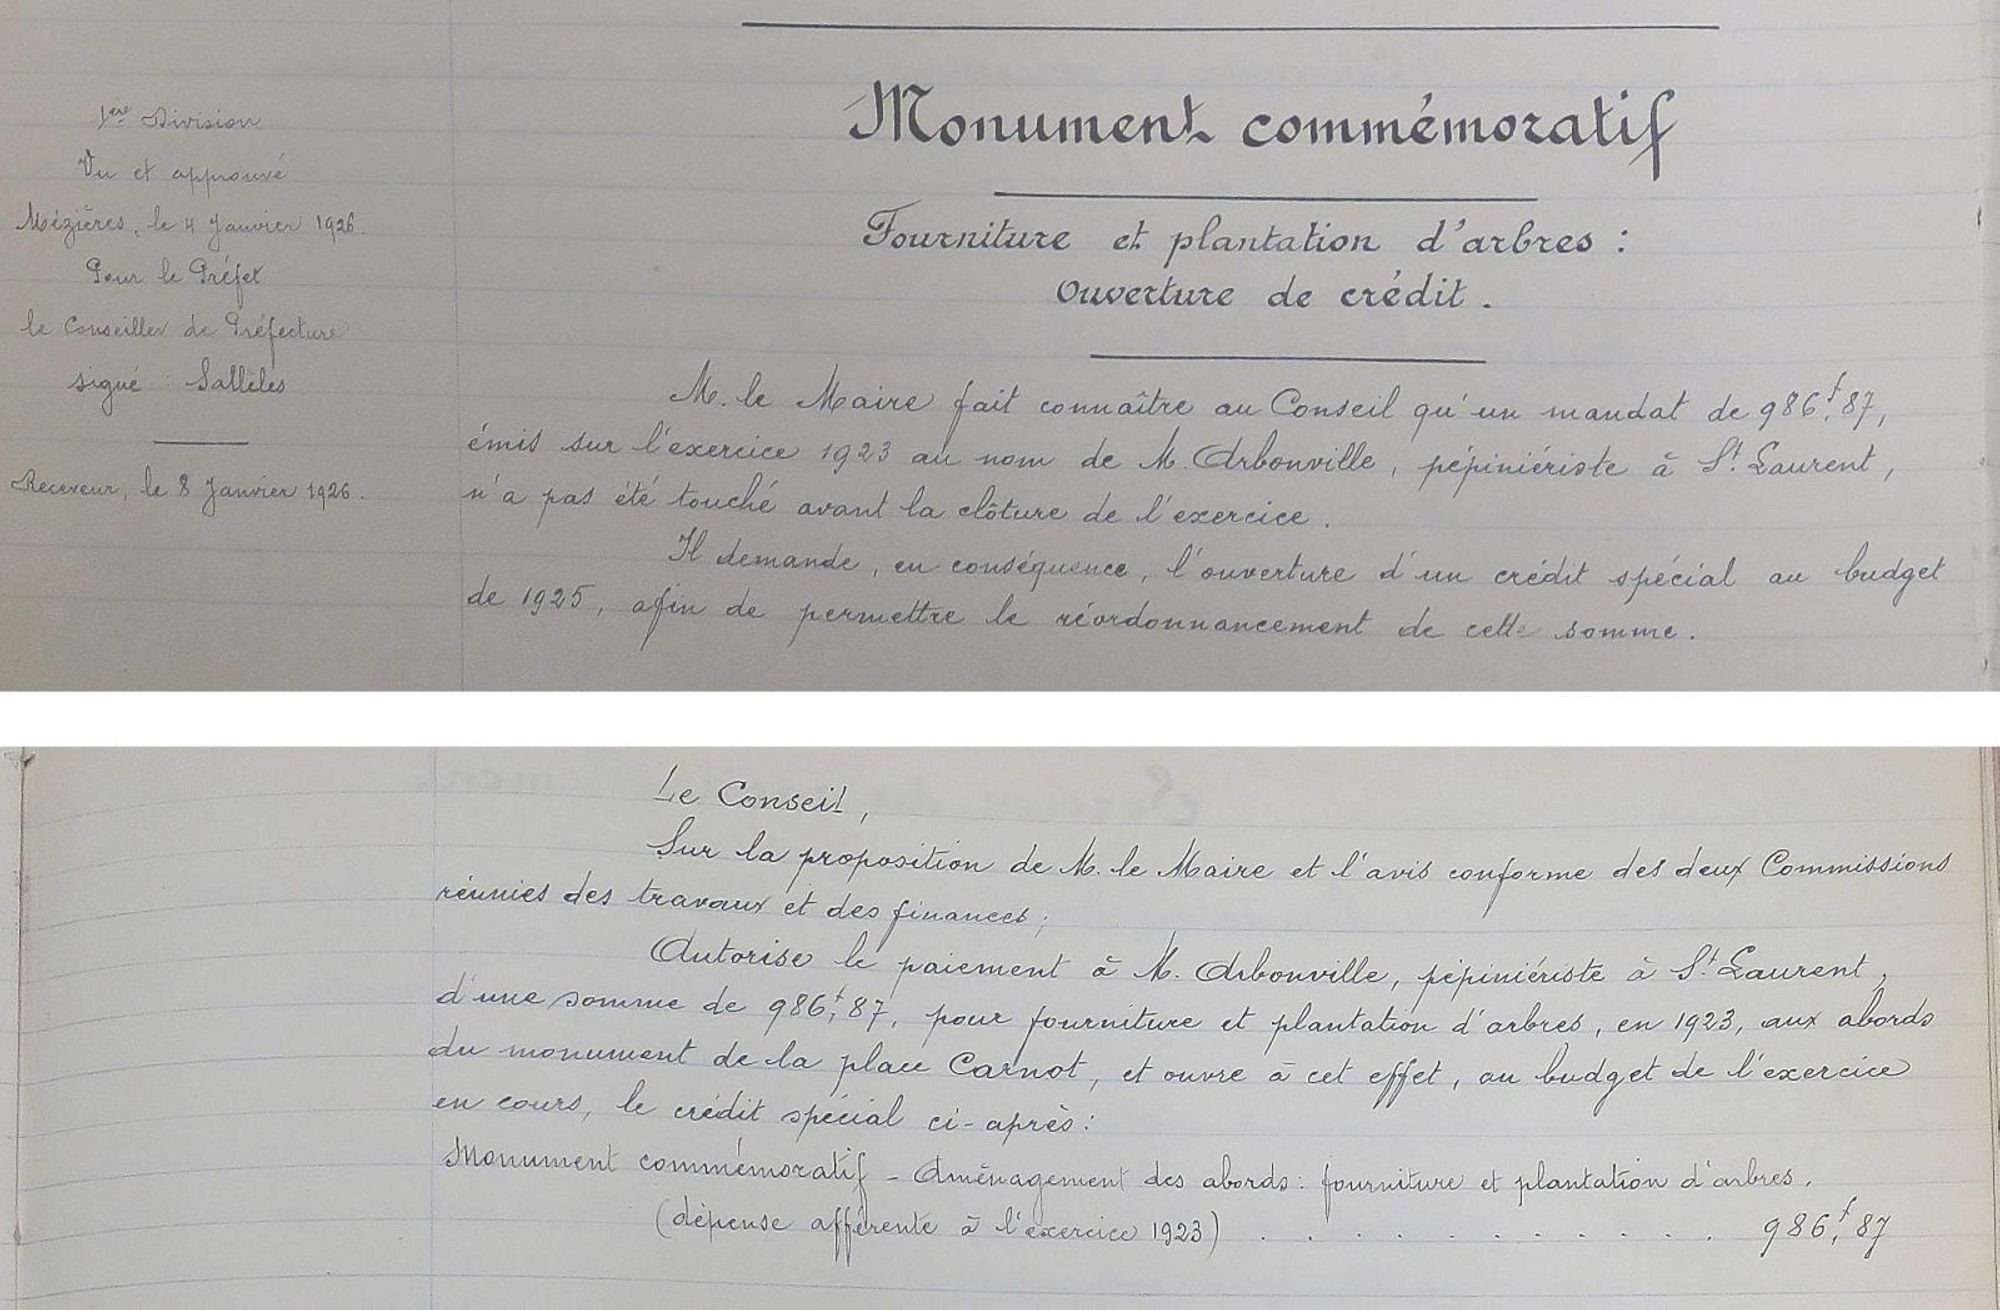 1ère Division
Vu et approuvé
Mézières, le 4 Janvier 1926.
Pour le Préfet
le Conseiller de Préfecture
signé : Sallèles
Receveur, le 8 Janvier 1926.
Monument commémoratif
Fourniture et plantation d'arbres :
Ouverture de crédit.
M. le Maire fait connaître au Conseil qu'un mandat de 986,f 87,
émis sur l'exercice 1923 au nom de M. Arbonville, pépiniériste à St Laurent,
n'a pas été touché avant la clôture de l'exercice.
Il demande, en conséquence, l'ouverture d'un crédit spécial au budget
de 1925, afin de permettre le réordonnancement de cette somme.
Le Conseil,
Sur la proposition de M. le Maire et l'avis conforme des deux Commissions
réunies des travaux et des finances ;
Autorise le paiement à M. Arbonville, pépiniériste à St Laurent,
d'une somme de 986,f 87, pour fourniture et plantation d'arbres, en 1923, aux abords
du monument de la place Carnot, et ouvre à cet effet, au budget de l'exercice
en cours, le crédit spécial ci-après :
Monument commémoratif - Aménagement des abords : fourniture et plantation d'arbres.
(dépense afférente à l'exercice 1923) . . . . . . . . . . . . . 986,f 87